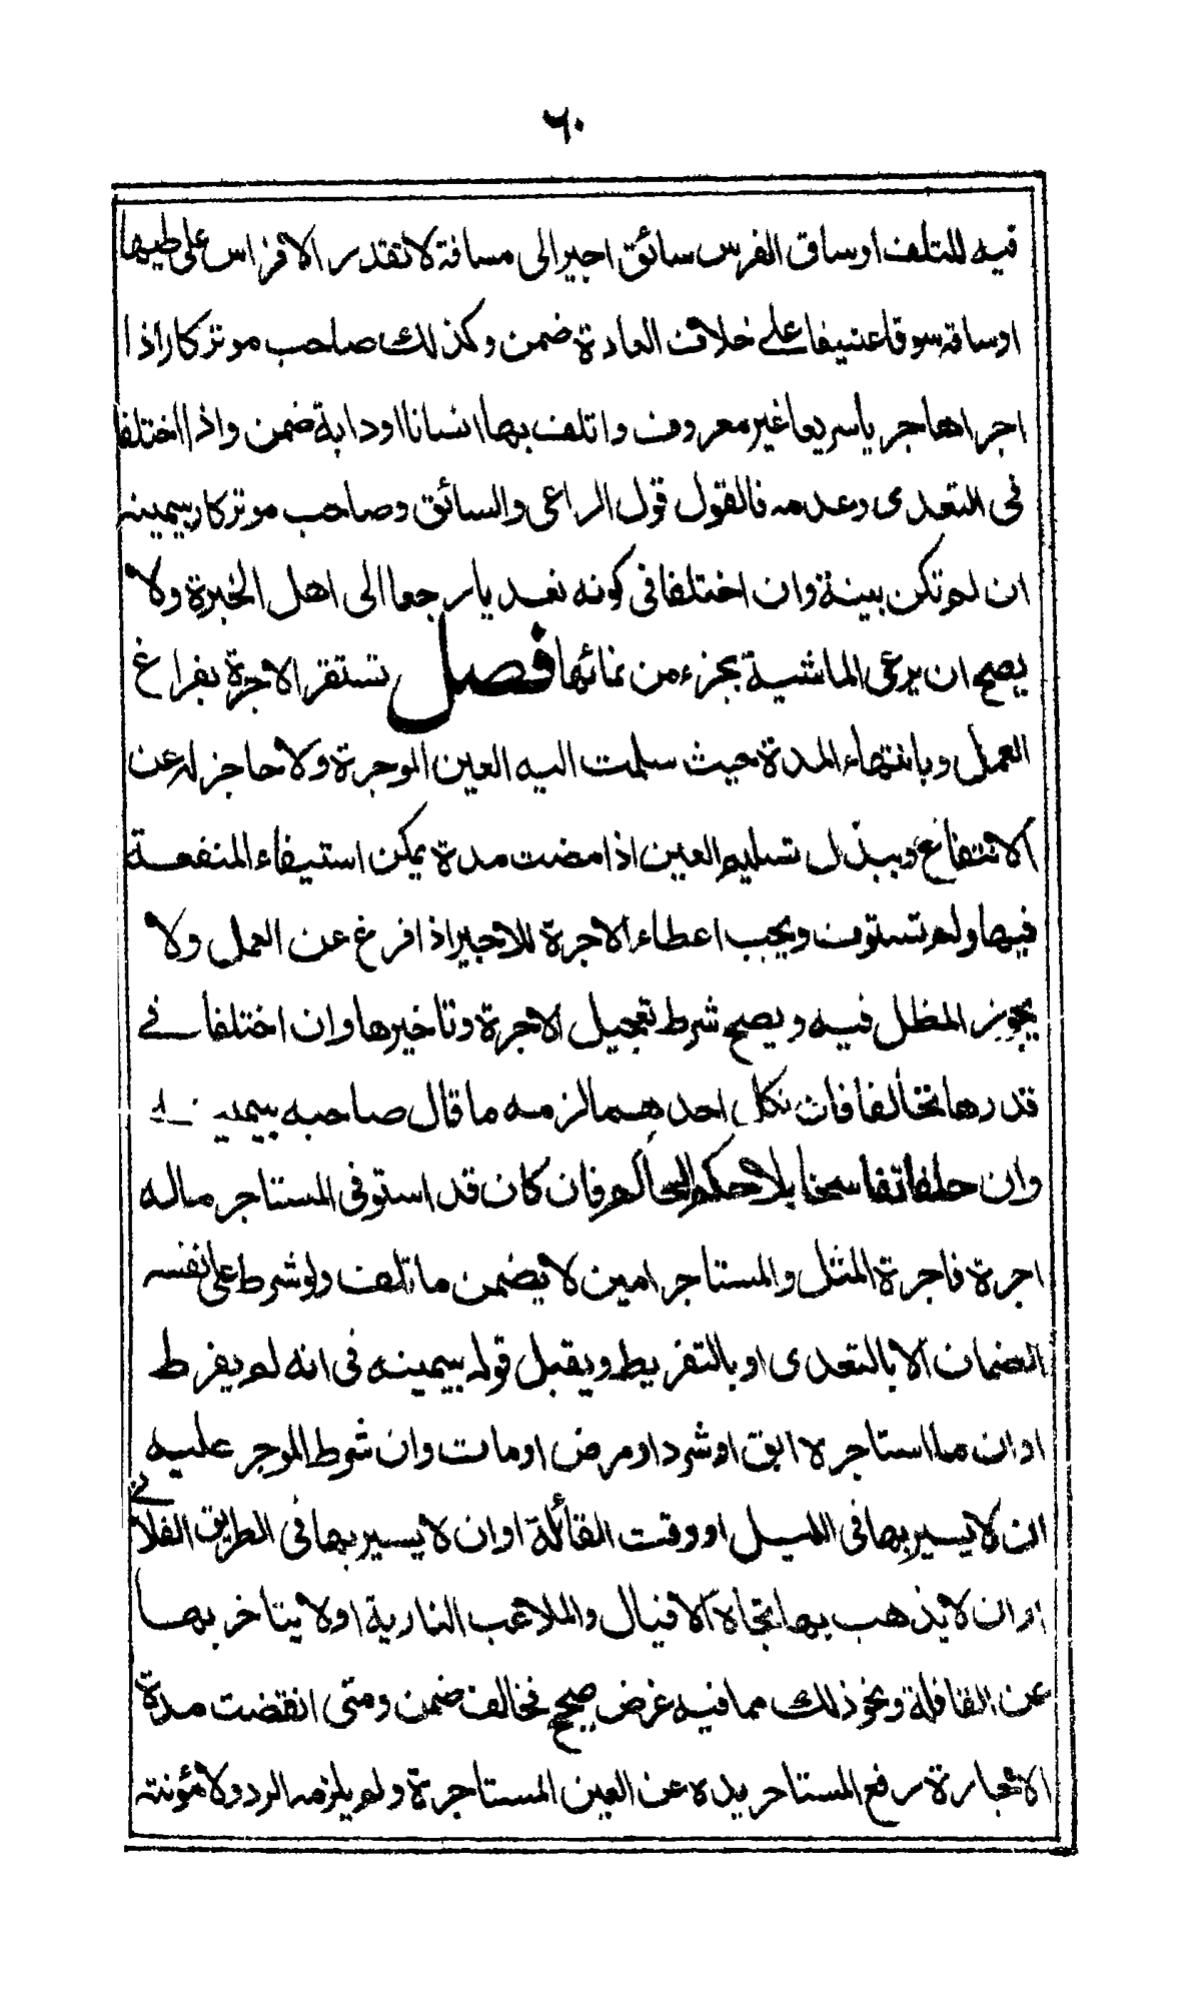 ٦٠
فيه للتلف او ساق الفرس سائق اجير الى مسافة لا تقدر الافراس على طيها
او ساقه سوقا عنيفا على خلاف العادة ضمن وكذلك صاحب موتر كار اذا
اجراها جريا سريعا غير معروف واتلف بها انسانا او دابة ضمن واذا اختلفا
فى التعدى وعدمه فالقول قول الراعى والسائق وصاحب موتر كار بيمينه
ان لم تكن بينة وان اختلفا فى كونه تعديا رجعا الى اهل الخبرة ولا
يصح ان يرعى الماشية بجزء من نمائها فصل تستقر الاجرة بفراغ
العمل وبانتهاء المدة حيث سلمت اليه العين الموجرة ولا حاجز له عن
الانتفاع وببذل تسليم العين اذا مضت مدة يمكن استيفاء المنفعة
فيها ولم تستوف ويجب اعطاء الاجرة للاجير اذا فرغ عن العمل ولا
يجوز المطل فيه ويصح شرط تعجيل الاجرة وتاخيرها وان اختلفا فى
قدرها تحالفا فان نكل احدهما لزمه ما قال صاحبه بيمينه
وان حلفا تفاسخا بلا حكم الحاكم فان كان قد استوفى المستاجر ماله
اجرة فاجرة المثل والمستاجر امين لا يضمن ما تلف ولو شرط على نفسه
الضمان الا بالتعدى او بالتفريط ويقبل قوله بيمينه فى انه لم يفرط
او ان ما استاجره ابق او شرد او مرض او مات وان شرط الموجر عليه
ان لا يسير بها فى الليل او وقت القائلة او ان لا يسير بها فى الطريق الفلانى
او ان لا يذهب بها تجاه الافيال والملاعب النارية او لا يتاخر بها
عن القافلة ونحو ذلك مما فيه غرض صحيح فخالف ضمن ومتى انقضت مدة
الاجارة رفع المستاجر يده عن العين المستاجرة ولم يلزمه الرد ولا مؤنته